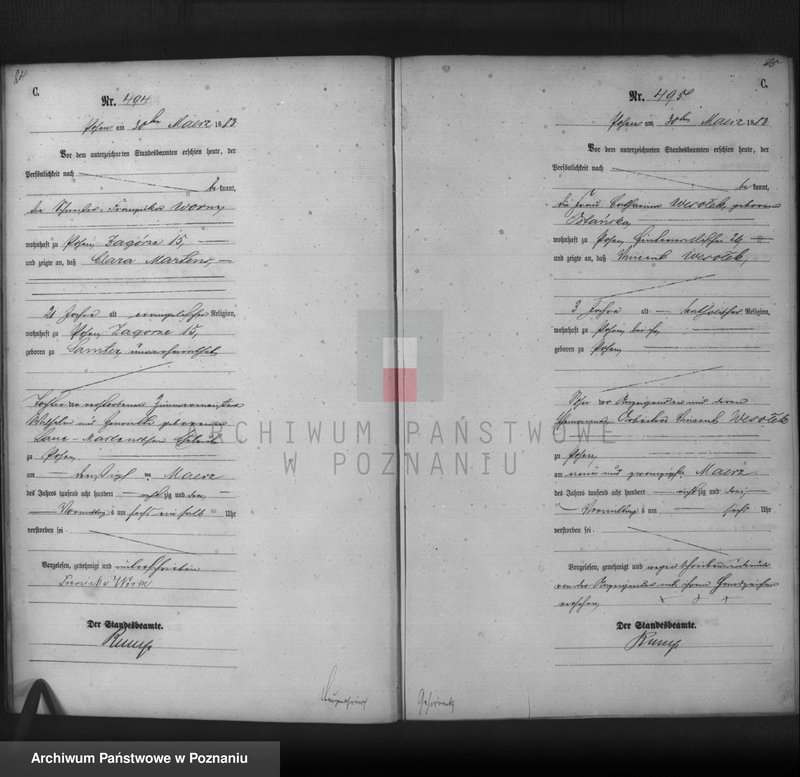 C.
Nr. 494
Posen am 30ten Maerz 1883
Vor dem unterzeichneten Standesbeamten erschien heute, der
Persönlichkeit nach
be kannt,
die Schwester Franziska Worm
wohnhaft zu Posen Zagórze 15,
und zeigte an, daß Clara Martens,
21 Jahre alt evangelischer Religion,
wohnhaft zu Posen Zagorze 15,
geboren zu Samter unverheirathet,
Tochter der verstorbenen Zimmermeister
Wilhelm und Henriette geborenen
Martens'schen Eheleute
zu Posen
am dreißigsten Maerz
des Jahres tausend acht hundert achtzig und drei,
Vormittags um sechs ein halb Uhr
verstorben sei
Vorgelesen, genehmigt und unterschrieben
Der Standesbeamte.
C.
Nr. 495
Posen am 30ten Maerz 1883
Vor dem unterzeichneten Standesbeamten erschien heute, der
Persönlichkeit nach
be kannt,
die Frau Catharina Wesołek, geborene
wohnhaft zu Posen, 29
und zeigte an, daß Vincent Wesołek,
3 Jahre alt katholischer Religion,
wohnhaft zu Posen bei ihr,
geboren zu Posen,
Sohn der Anzeigenden und deren
Ehemannes Arbeiter Vincent Wesołek
zu Posen,
am neun und zwanzigsten Maerz
des Jahres tausend acht hundert achtzig und drei,
Vormittags um sechs Uhr
verstorben sei
Vorgelesen, genehmigt und wegen Schreibensunkunde
von der Anzeigenden mit ihrem Handzeichen
versehen,
x x x
Der Standesbeamte.
ARCHIWUM PAŃSTWOWE
W POZNANIU
Archiwum Państwowe w Poznaniu